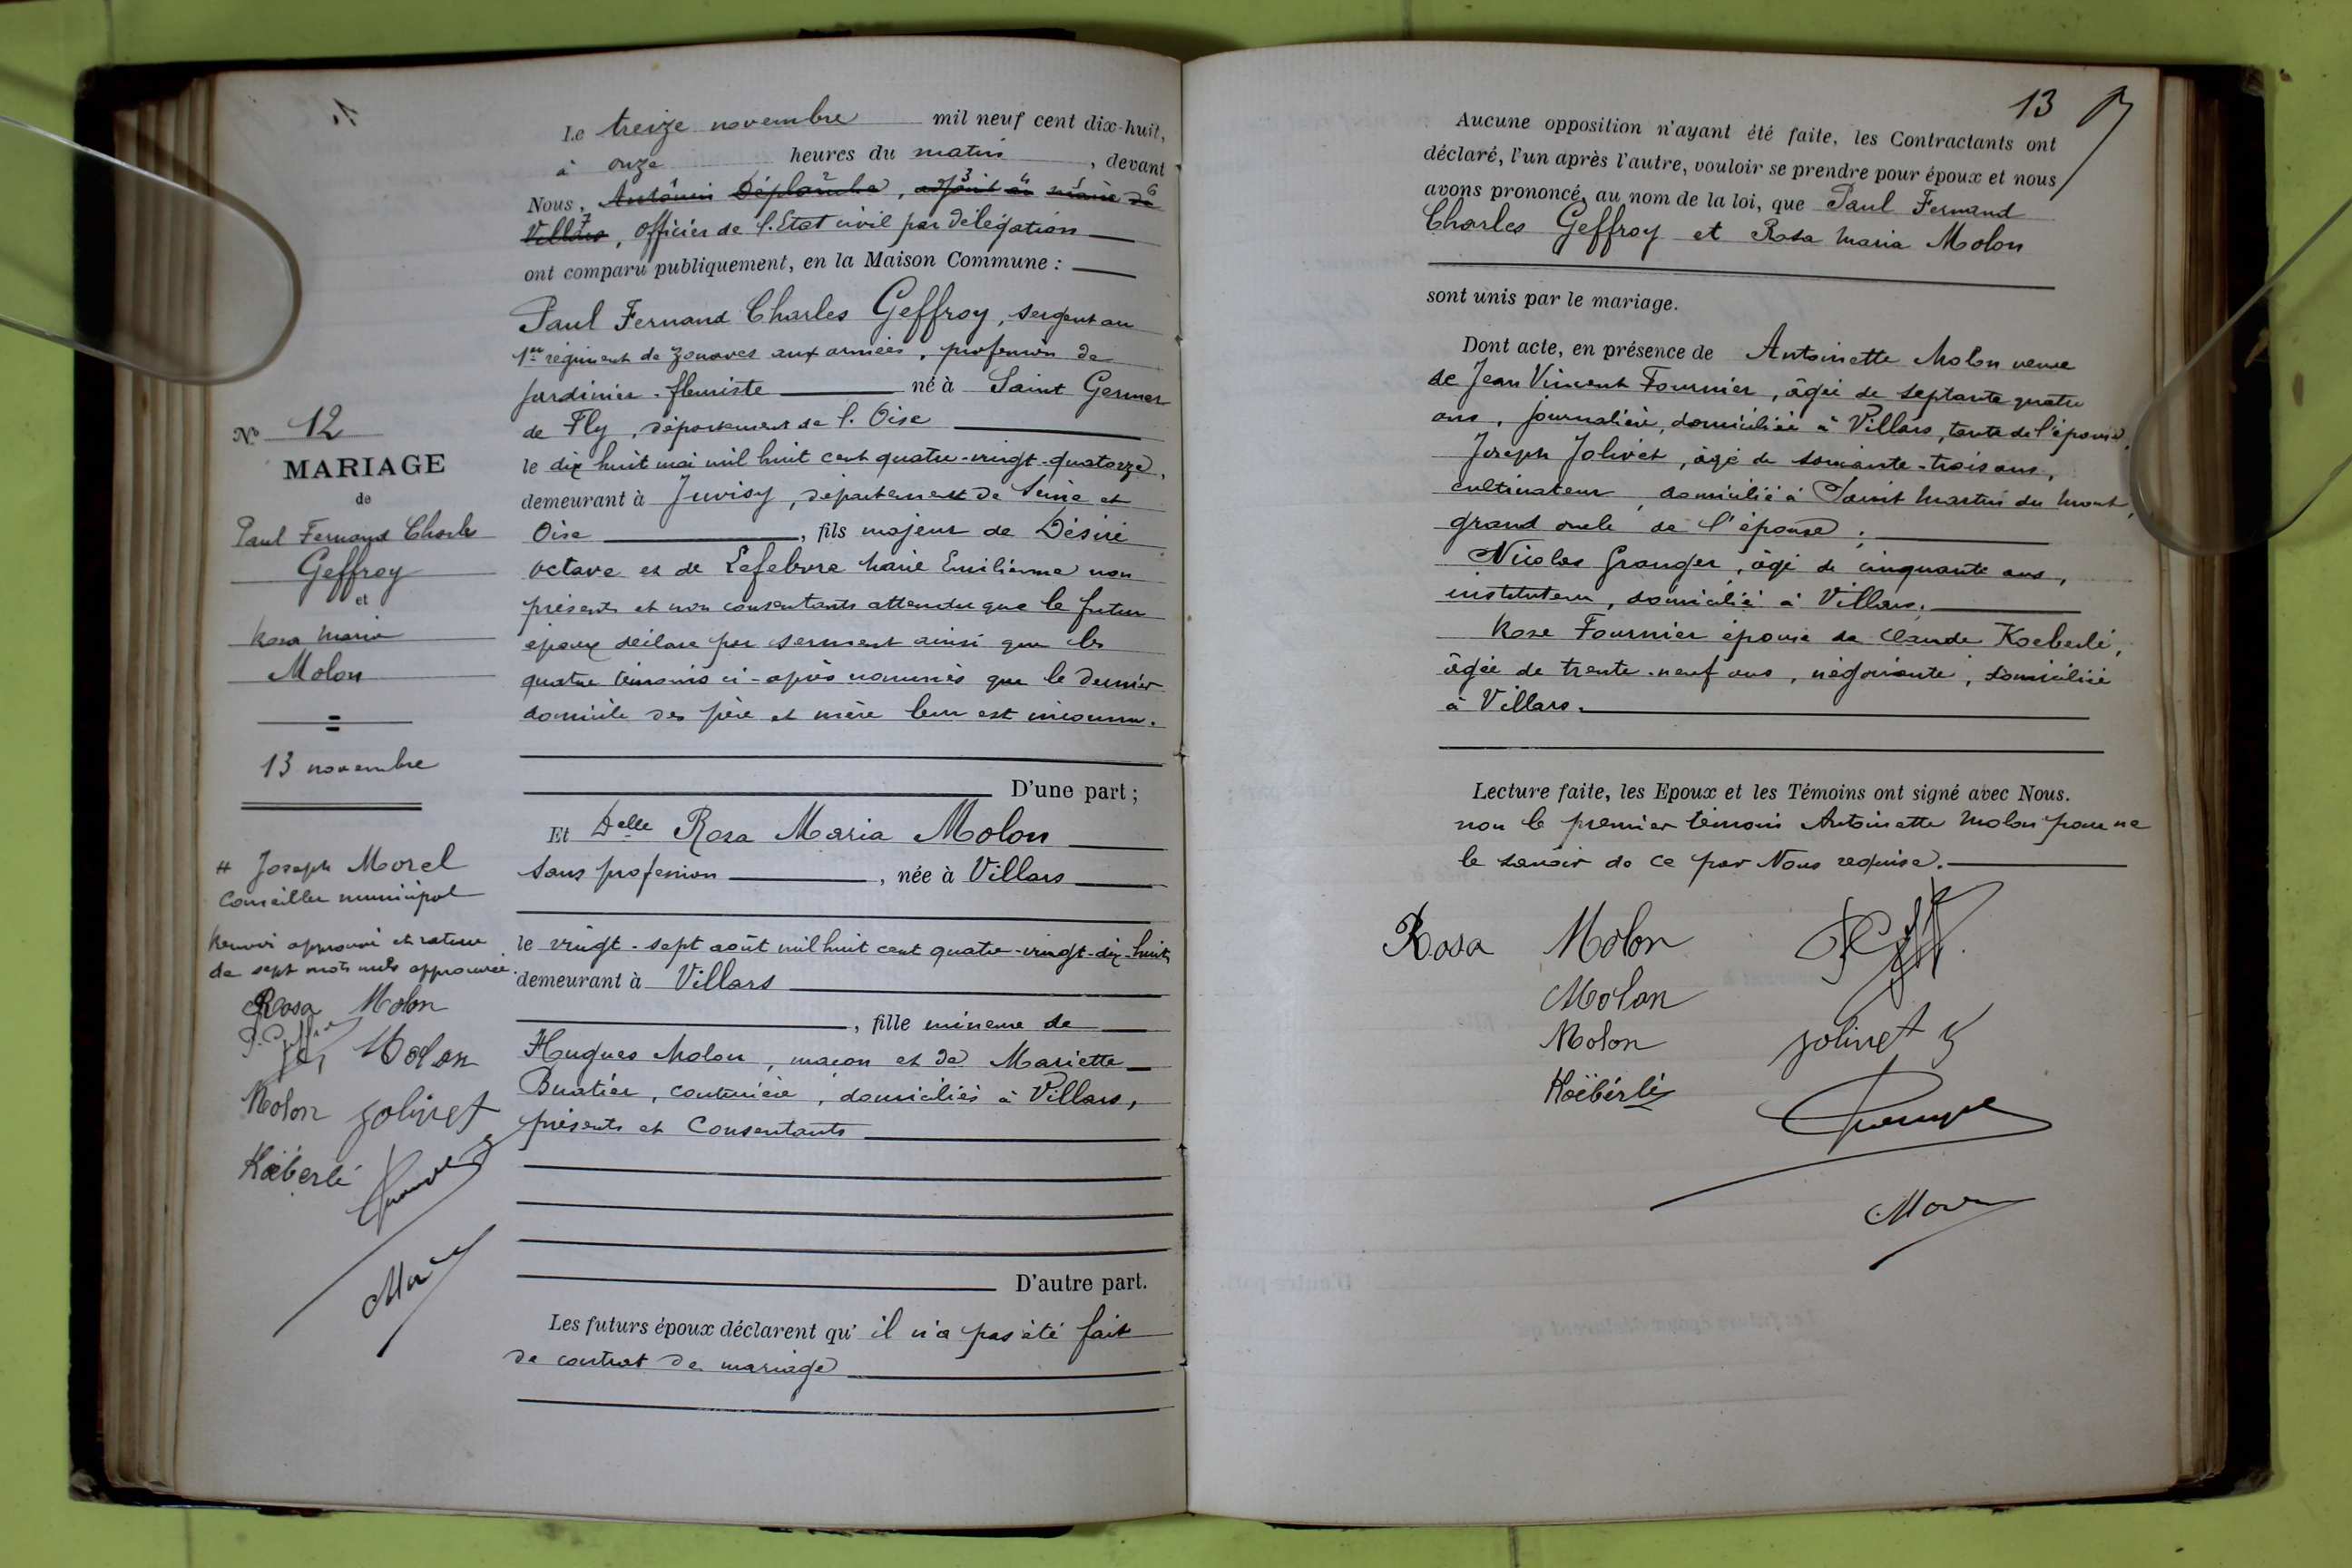 Le treize novembre mil neuf cent dix-huit,
à onze heures du matin, devant
Nous, Antonin Déplanche, adjoint au maire de
Villars, Officier de l'Etat civil par délégation
ont comparu publiquement, en la Maison Commune :
Paul Fernand Charles Geffroy, sergent au
1er régiment de zouaves aux armées, profession de
jardinier-fleuriste né à Saint Germer
de Fly, département de l'Oise
le dix huit mai mil huit cent quatre-vingt-quatorze,
demeurant à Juvisy, département de Seine et
Oise, fils majeur de Désiré
octave et de Lefebvre Marie Emilienne non
présents et non consentants attendu que le futur
époux déclare par serment ainsi que les
quatre témoins ci-après nommés que le dernier
domicile des père et mère leur est inconnu.
D'une part ;
Et Delle Rosa Maria Molon
sans profession, née à Villars
le vingt-sept août mil huit cent quatre-vingt-dix-huit
demeurant à Villars
, fille mineure de
Hugues Molon, maçon et de Mariette
Buatier, couturière, domiciliés à Villars,
présents et Consentants
D'autre part.
Les futurs époux déclarent qu'il n'a pas été fait
de contrat de mariage
No 12
MARIAGE
de
Paul Fernand Charles
Geffroy
et
Rosa Maria
Molon
13 novembre
# Joseph Morel
Conseiller municipal
Renvoi approuvé et rature
de sept mots nuls approuvée.
Rosa Molon
Molon
Molon Jolivet
Kœberlé
13
Aucune opposition n'ayant été faite, les Contractants ont
déclaré, l'un après l'autre, vouloir se prendre pour époux et nous
avons prononcé, au nom de la loi, que Paul Fernand
Charles Geffroy et Rosa Maria Molon
sont unis par le mariage.
Dont acte, en présence de Antoinette Molon veuve
de Jean Vincent Fournier, âgée de septante quatre
ans, journalière, domiciliée à Villars, tante de l'épouse,
Joseph Jolivet, âgé de soixante-trois ans,
cultivateur, domicilié à Saint Martin du Mont,
grand oncle de l'épouse ;
Nicolas Granger, âgé de cinquante ans,
instituteur, domicilié à Villars.
Rose Fournier épouse de Claude Koeberlé,
âgée de trente-neuf ans, négociante, domiciliée
à Villars.
Lecture faite, les Epoux et les Témoins ont signé avec Nous.
non le premier témoin Antoinette Molon pour ne
le savoir de ce par Nous requise.
Rosa Molon
Molon
Molon Jolivet
Koëbérlé